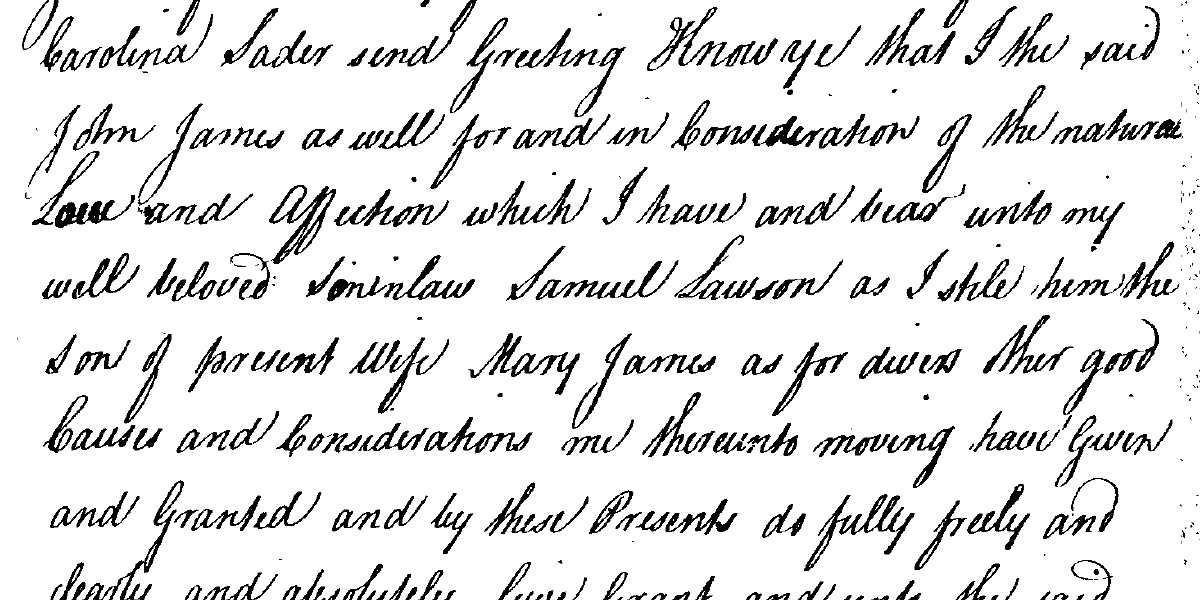 Carolina Sader send Greeting Know ye that I the said
John James as well for and in Consideration of the natural
Love and Affection which I have and bear unto my
well beloved Soninlaw Samuel Lawson as I stile him the
son of present Wife Mary James as for divers ther good
Causes and Considerations me thereunto moving have Given
and Granted and by these Presents do fully freely and
clearly and absolutely Give Grant and unto the said